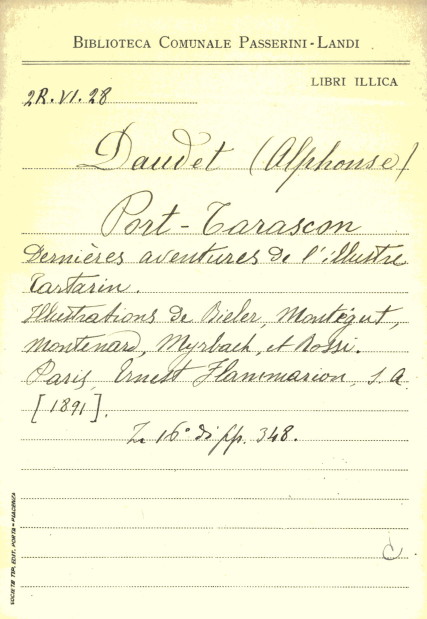 BIBLIOTECA COMUNALE PASSERINI-LANDI
LIBRI ILLICA
2R.VI.28
Daudet (Alphonse)
Port-Tarascon
Dernières aventures de l'illustre
Tartarin.
Illustrations de Bieler, Montégut,
Montenard, Myrbach, et Rossi.
Paris, Ernest Flammarion, s.a.
[1891].
In 16° di pp. 348.
C
SOCIETÀ TIP. EDIT. PORTA - PIACENZA